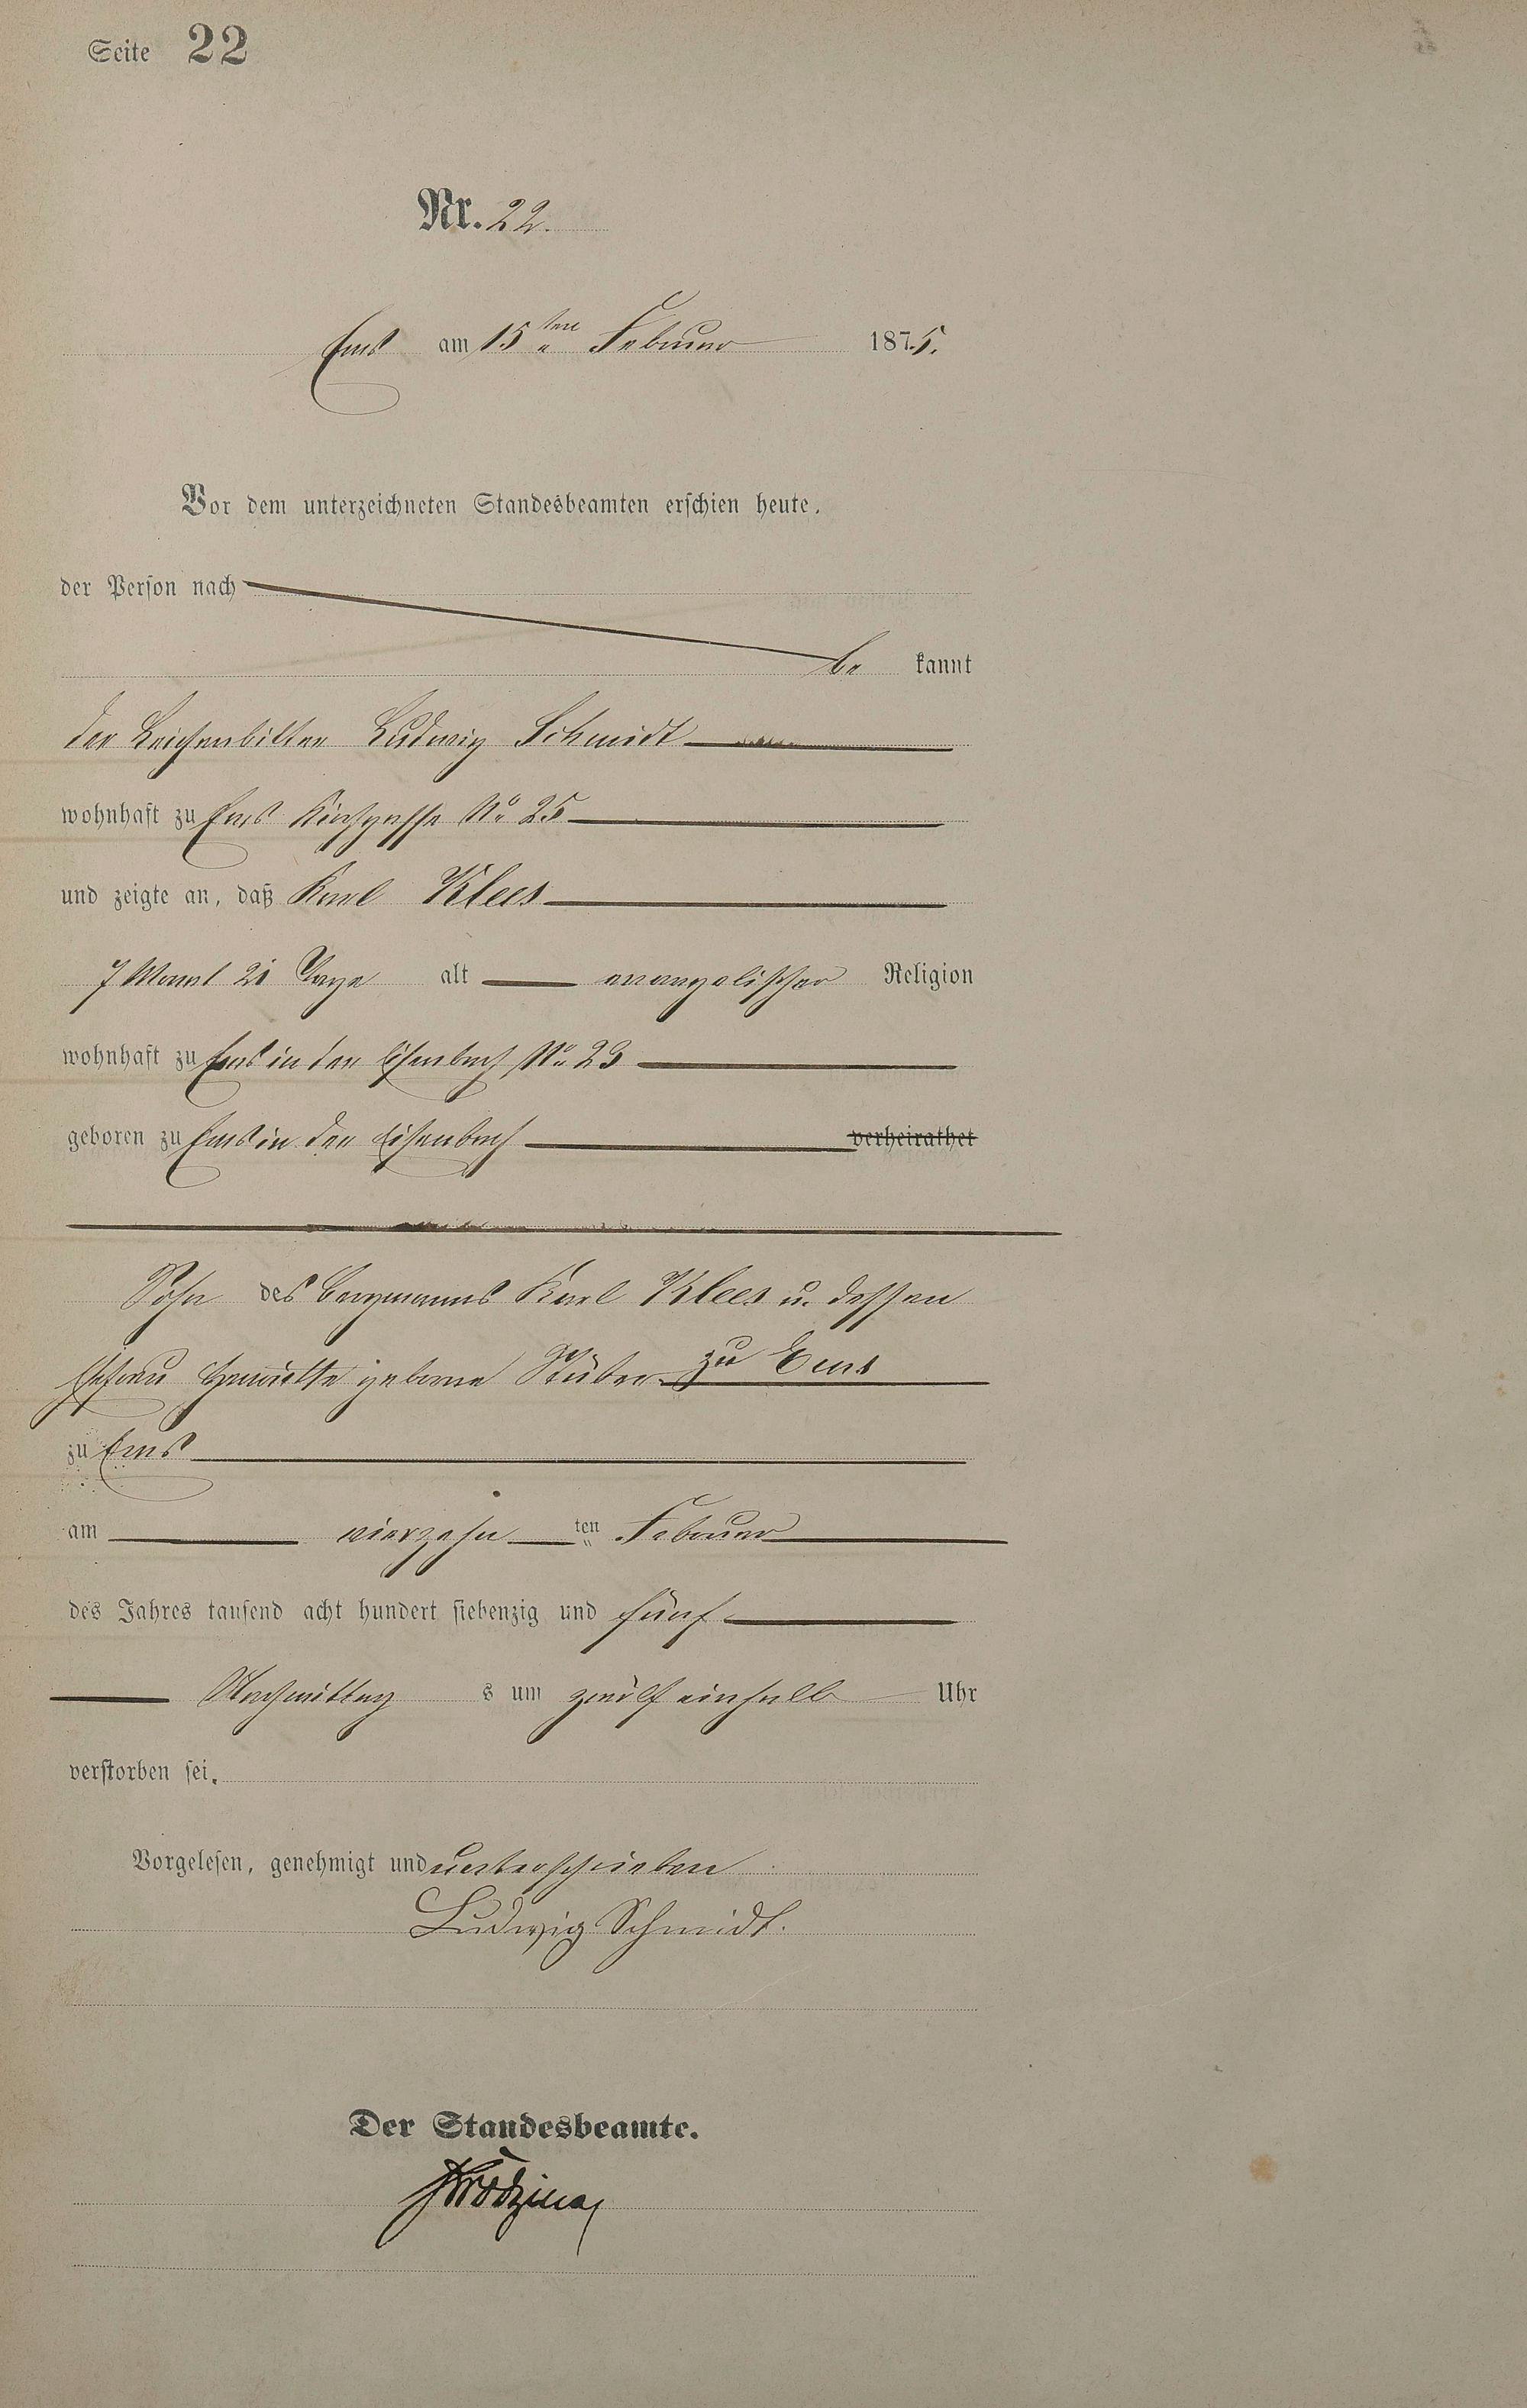 Seite 22
Nr. 22.
Ems am 15ten Februar 1875.
Vor dem unterzeichneten Standesbeamten erschien heute,
der Person nach
be kannt
der Leichenbitter Ludwig Schmidt
wohnhaft zu Ems Kirchgasse No 25
und zeigte an, daß Karl Klees
7 Monat 21 Tage alt evangelischer Religion
wohnhaft zu Ems in der Eisenbach No 23
geboren zu Ems in der Eisenbach verheirathet
Sohn des Bergmanns Karl Klees u. dessen
Ehefrau geborne Stüber zu Ems
zu Ems
am vierzehn ten Februar
des Jahres tausend acht hundert siebenzig und fünf
Nachmittag s um zwölf einhalb Uhr
verstorben sei.
Vorgelesen, genehmigt und unterschrieben
Ludwig Schmidt.
Der Standesbeamte.